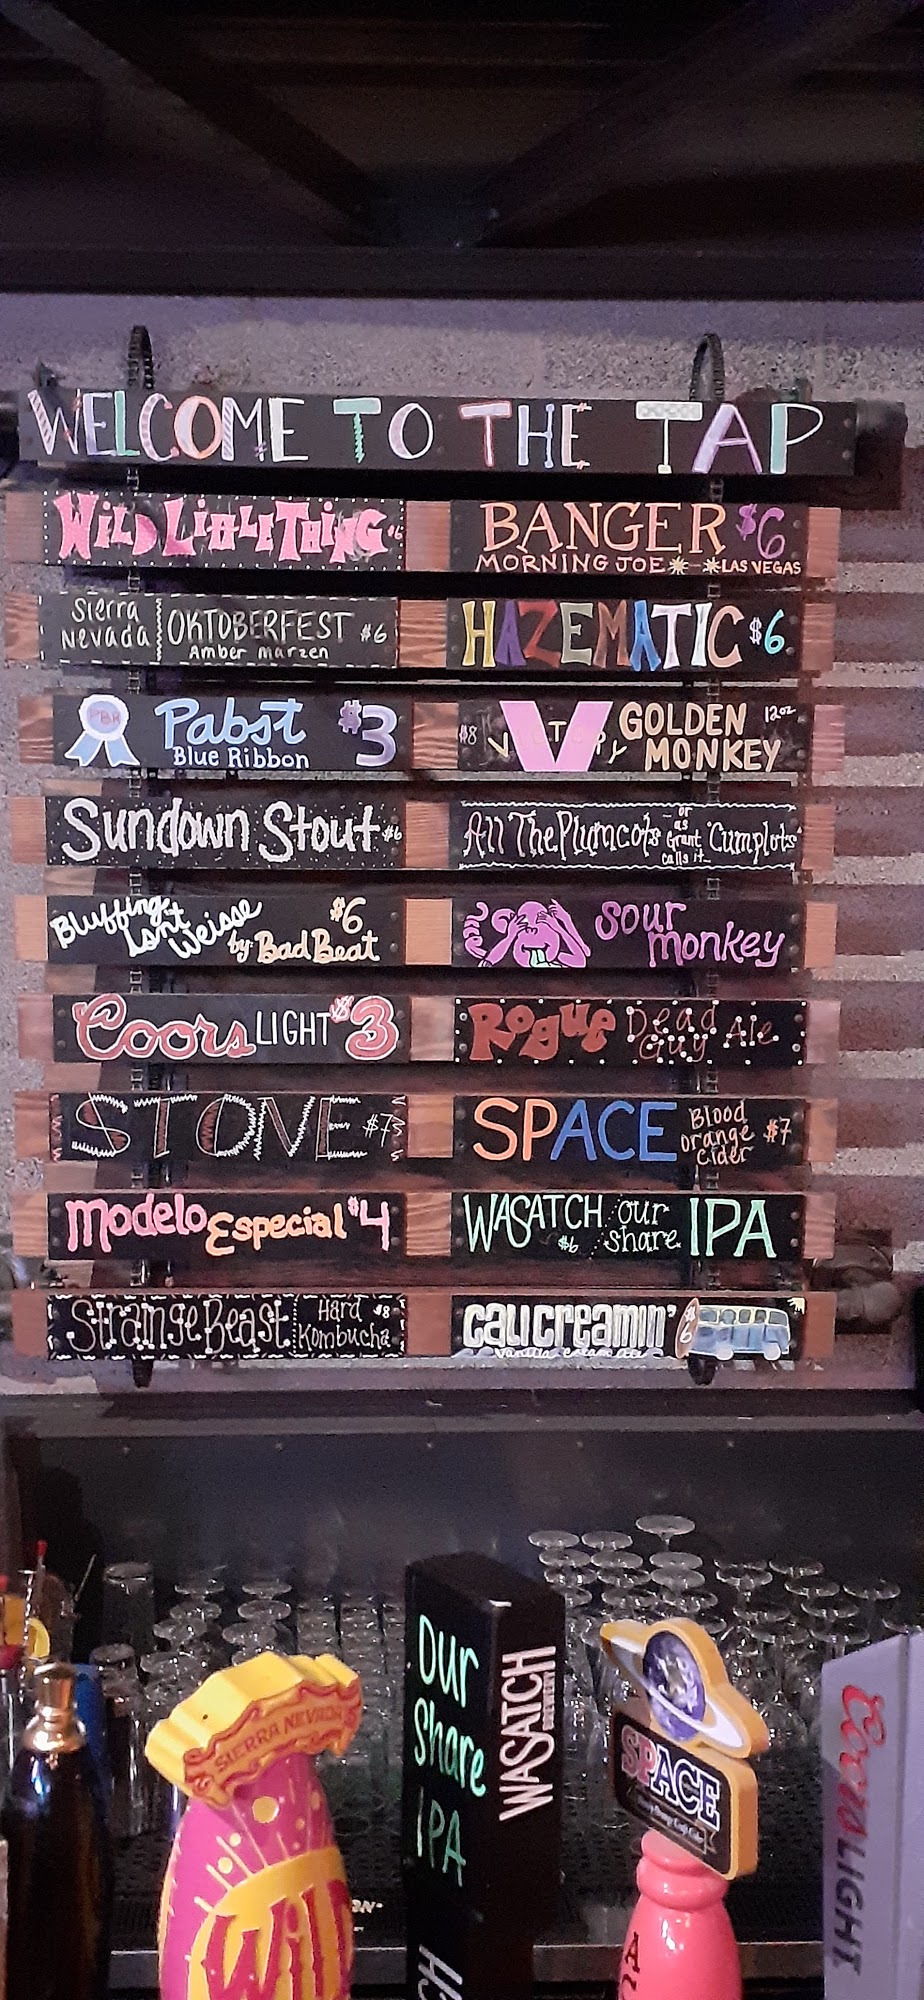 WELCOME TO THE TAP
Wild Little Thing $6
BANGER $6
MORNING JOE LAS VEGAS
Sierra Nevada OKTOBERFEST $6
Amber Marzen
HAZEMATIC $6
PBR Pabst $3
Blue Ribbon
$8 VICTORY GOLDEN MONKEY 12oz
Sundown Stout $6
All The Plumcots or as Grant calls it "Cumplots"
Bluffing Isn't Weisse $6
by: Bad Beat
Sour Monkey
Coors LIGHT $3
Rogue Dead Guy Ale
STONE $7
SPACE Blood Orange Cider $7
Modelo Especial $4
WASATCH our share IPA
$6
Strange Beast Hard Kombucha $8
CALI CREAMIN' $6
Vanilla Cream Ale
SIERRA NEVADA
WiLD
Our
Share
IPA
WASATCH
BREWERY
SPACE
Coors LIGHT